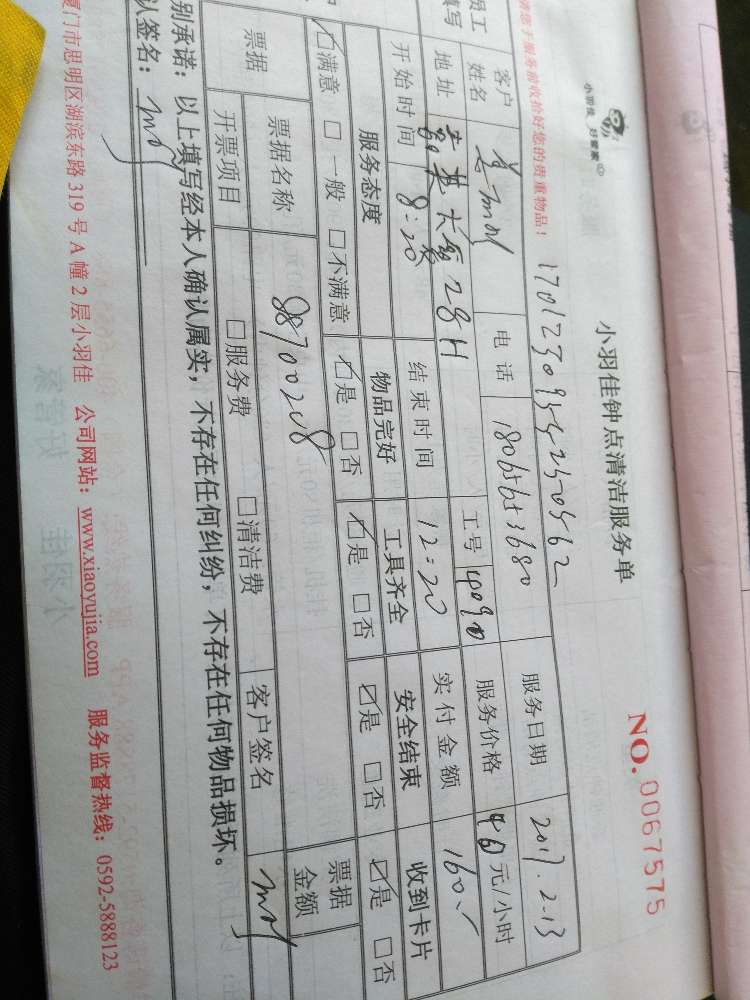 小羽佳 好管家
小羽佳钟点清洁服务单
NO. 0067575
收拾好您的贵重物品!
客户
姓名
电话 18065653680
服务日期 2017.2.13
地址 28H
工号 4090
服务价格 40元/小时
开始时间 8:20
结束时间 12:20
实付金额 160
服务态度 物品完好 工具齐全 安全结束 收到卡片
☑满意 □一般 □不满意 ☑是 □否 ☑是 □否 ☑是 □否 ☑是 □否
票据 票据名称 8870028 票据金额
开票项目 □服务费 □清洁费 客户签名
别承诺:以上填写经本人确认属实,不存在任何纠纷,不存在任何物品损坏。
认签名:
厦门市思明区湖滨东路319号A幢2层小羽佳 公司网站:www.xiaoyujia.com 服务监督热线:0592-5888123